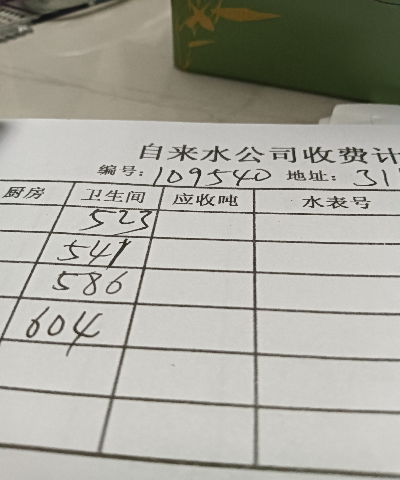 自来水公司收费计
编号：109540 地址：311
厨房 卫生间 应收吨 水表号
523
541
586
604